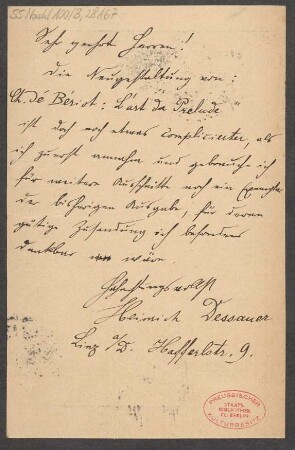 55 Nachl 100/B, 28167
Sehr geehrte Herren!
Die Neugestaltung von:
Ch. de Bériot: L'art du Prelude"
ist doch noch etwas complicirter, als
ich zuerst annahm und gebrauche ich
für weitere Ausschnitte noch ein Exemplar
der bisherigen Ausgabe, für deren
gütige Zusendung ich besonders
dankbar wäre.
Hochachtungsvollst
Heinrich Dessauer
Linz a/D. Hafferlstr. 9.
PREUSSISCHER
STAATS-
BIBLIOTHEK
ZU BERLIN
KULTURBESITZ